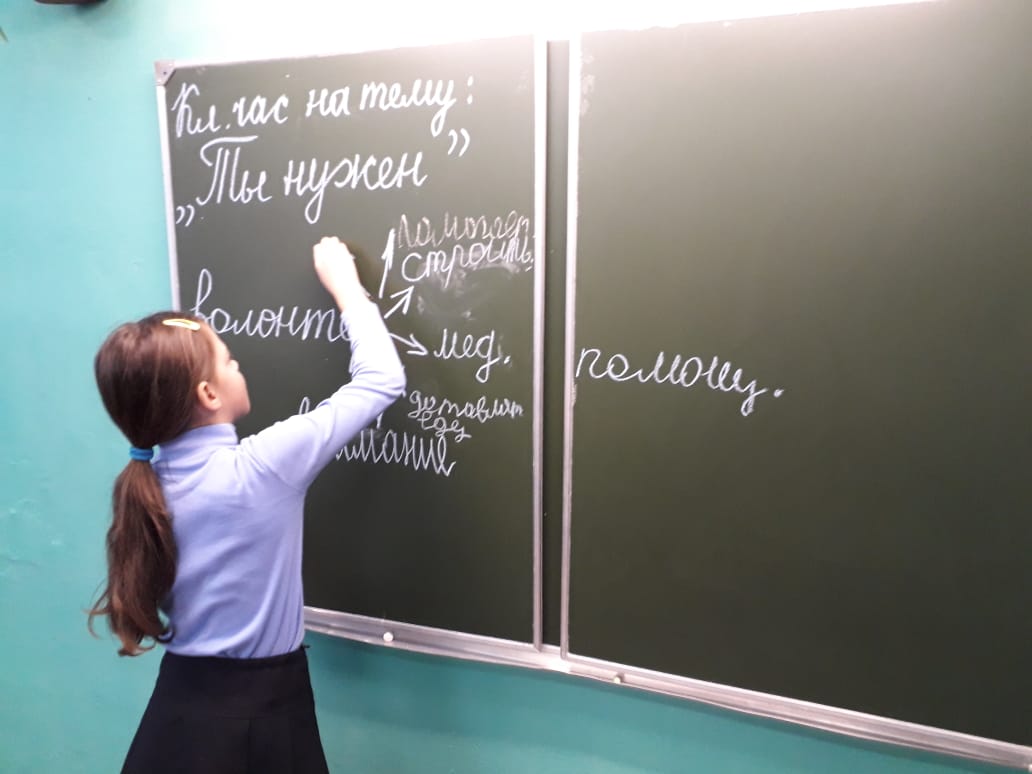 Кл. час на тему:
„Ты нужен”
строить.
волонте
мед. помощь.
доставлят
еду
имание